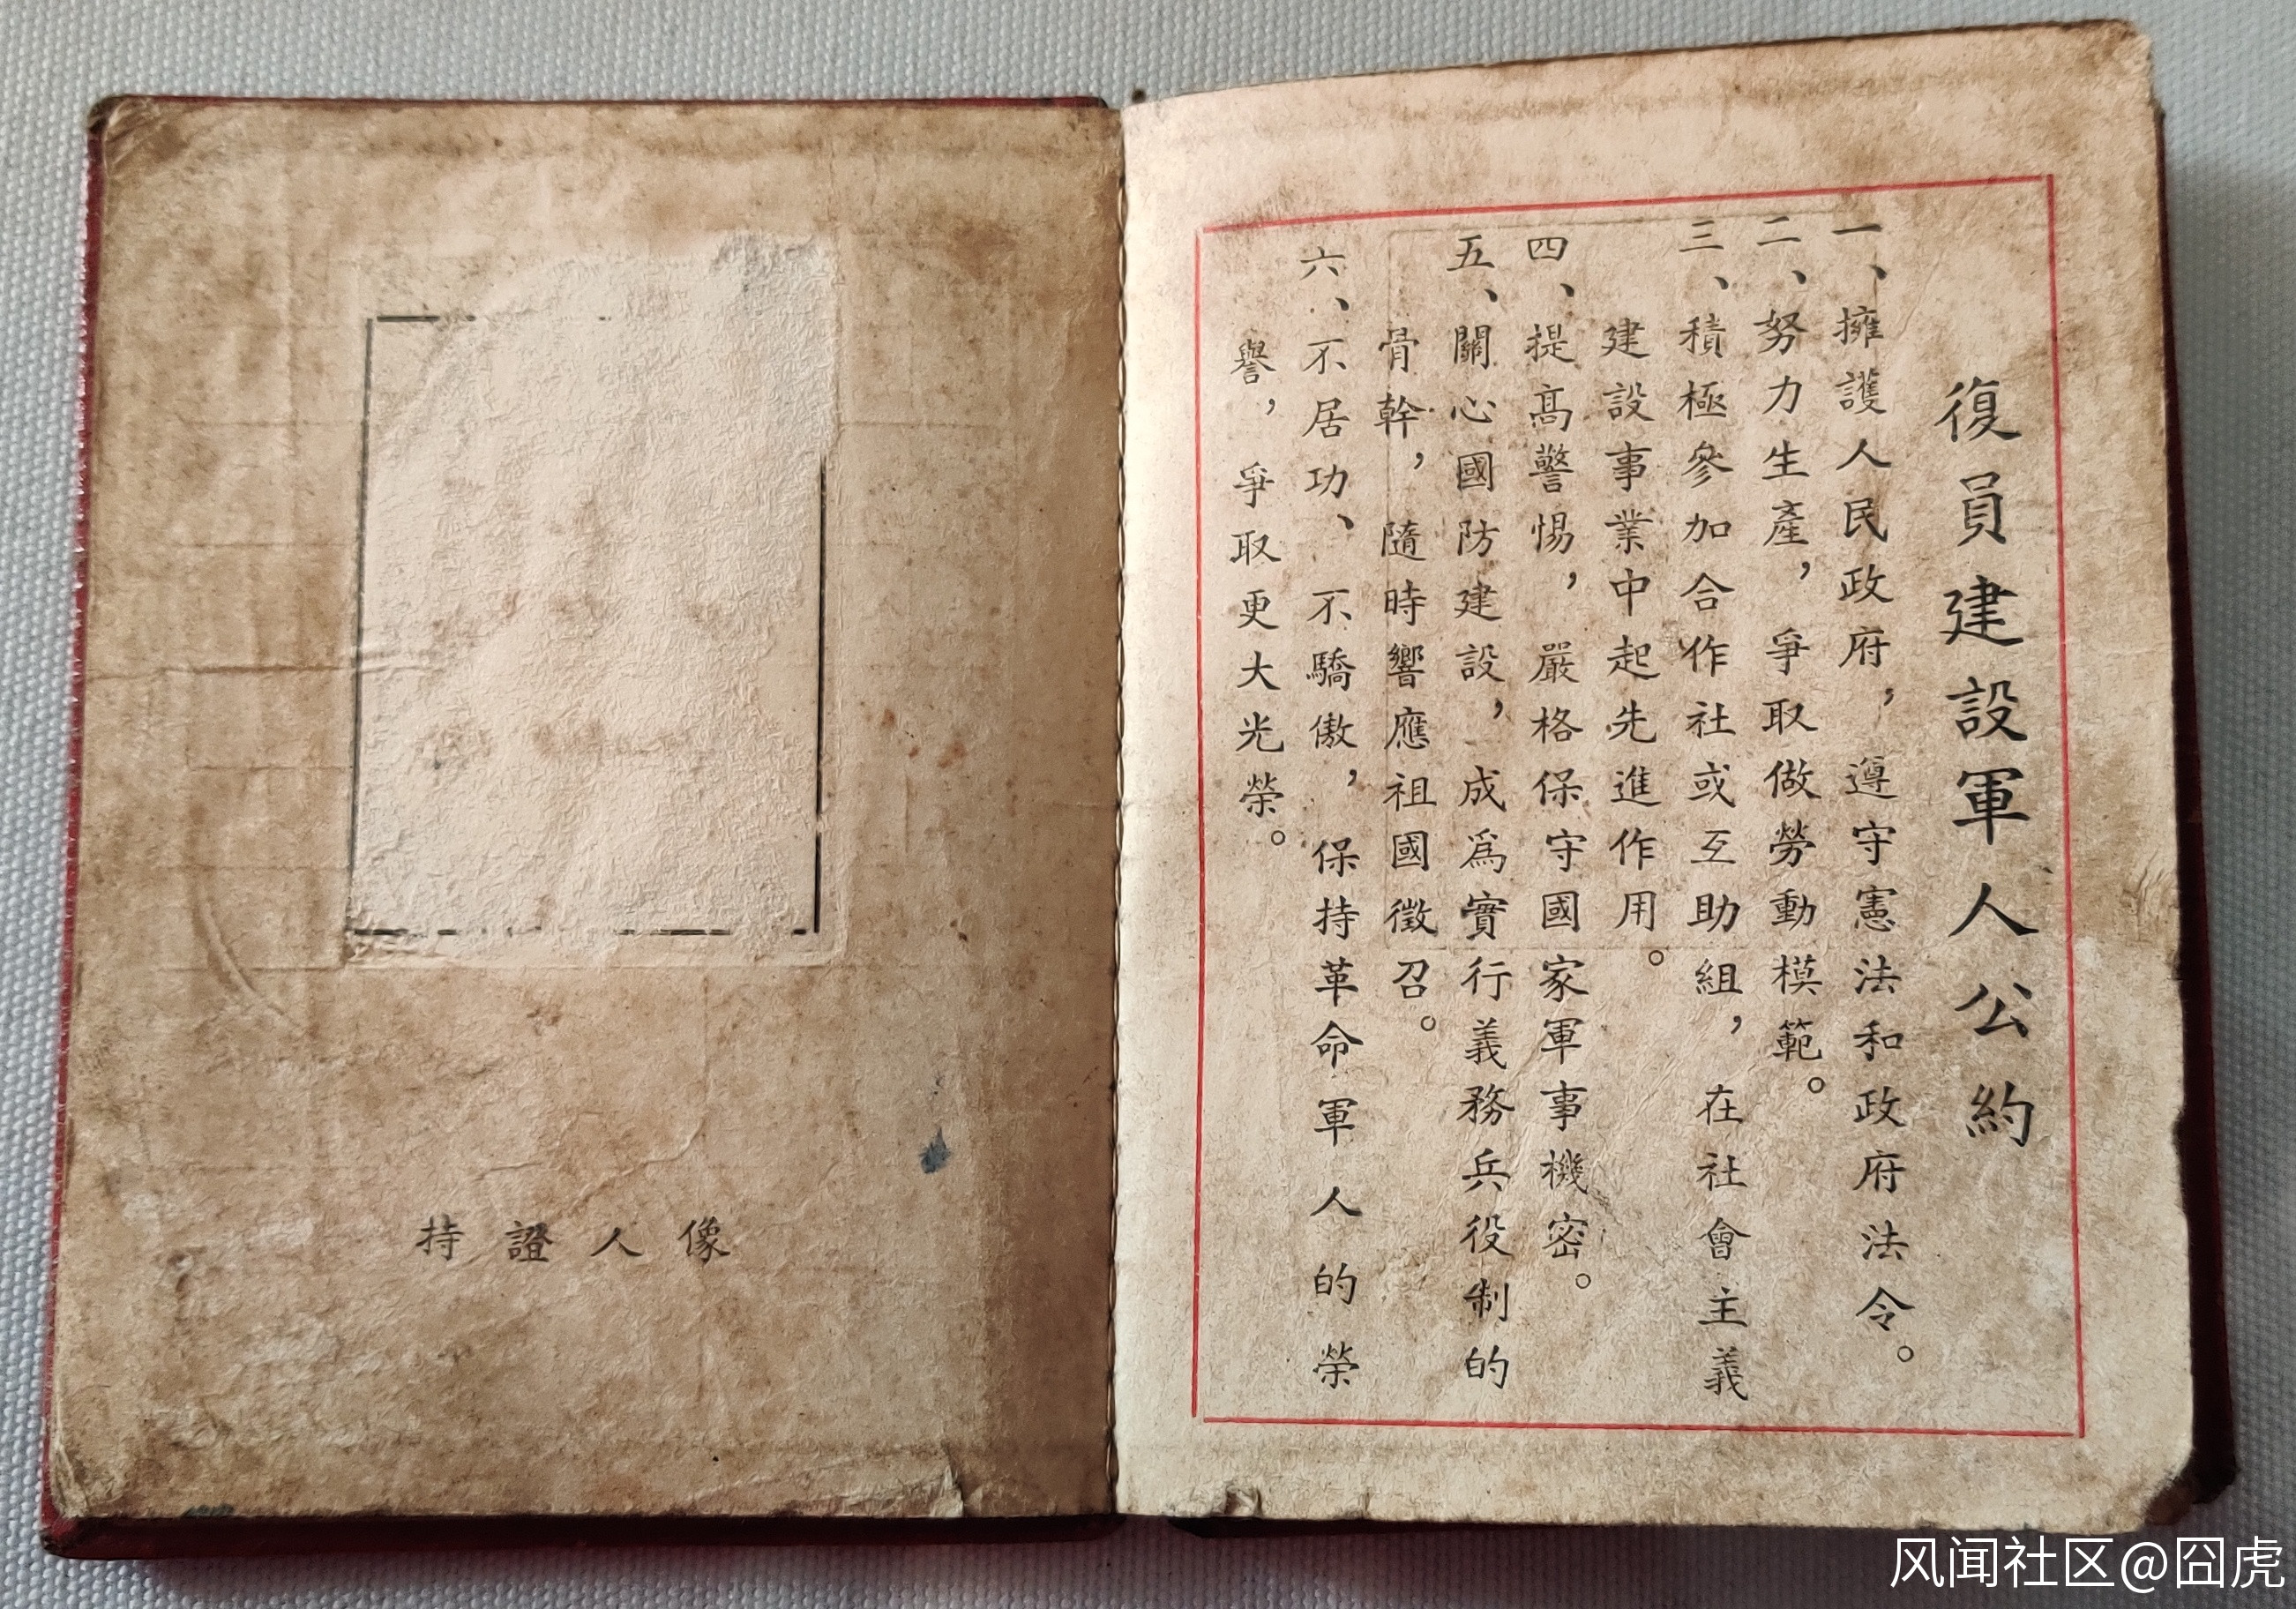 復員建設軍人公約
一、擁護人民政府，遵守憲法和政府法令。
二、努力生產，爭取做勞動模範。
三、積極參加合作社或互助組，在社會主義
建設事業中起先進作用。
四、提高警惕，嚴格保守國家軍事機密。
五、關心國防建設，成爲實行義務兵役制的
骨幹，隨時響應祖國徵召。
六、不居功、不驕傲，保持革命軍人的榮
譽，爭取更大光榮。
持證人像
风闻社区@囧虎